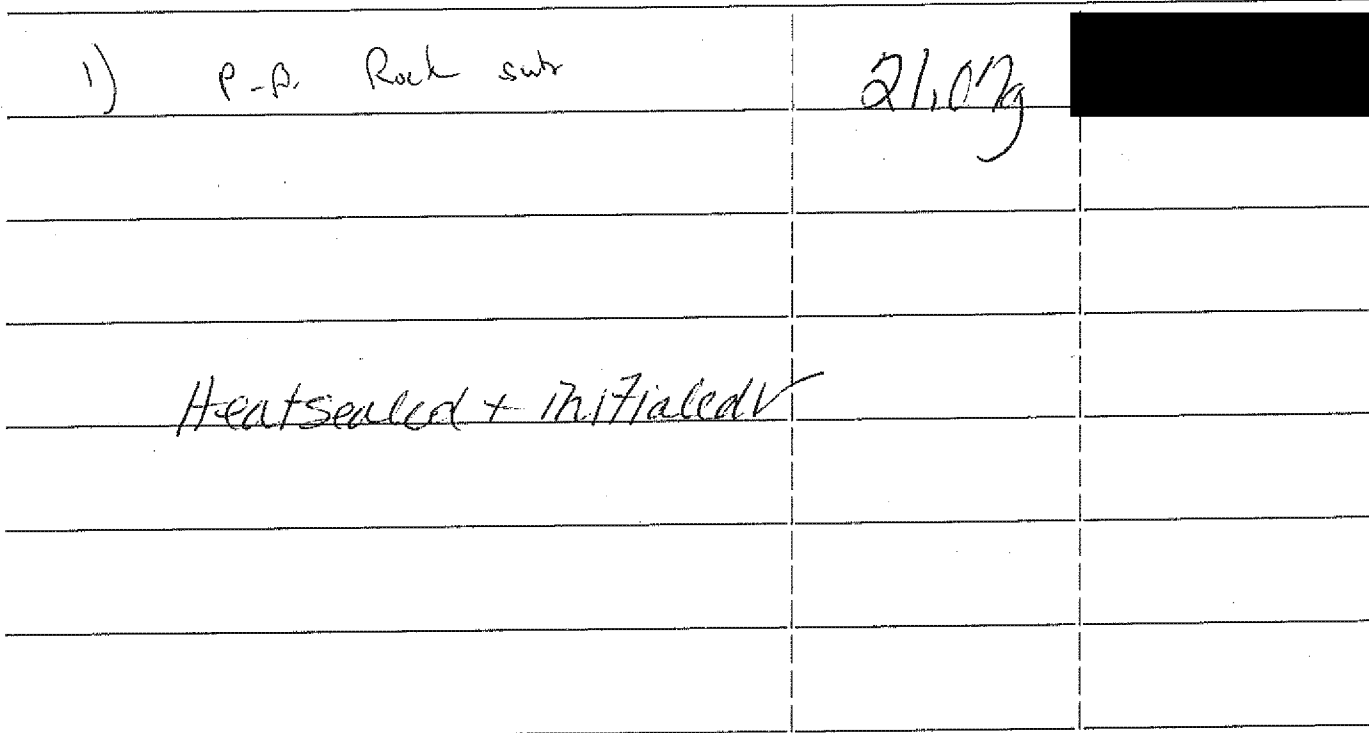 1) P-B. Rock sub 21.07g
Heatsealed + initialed ✓